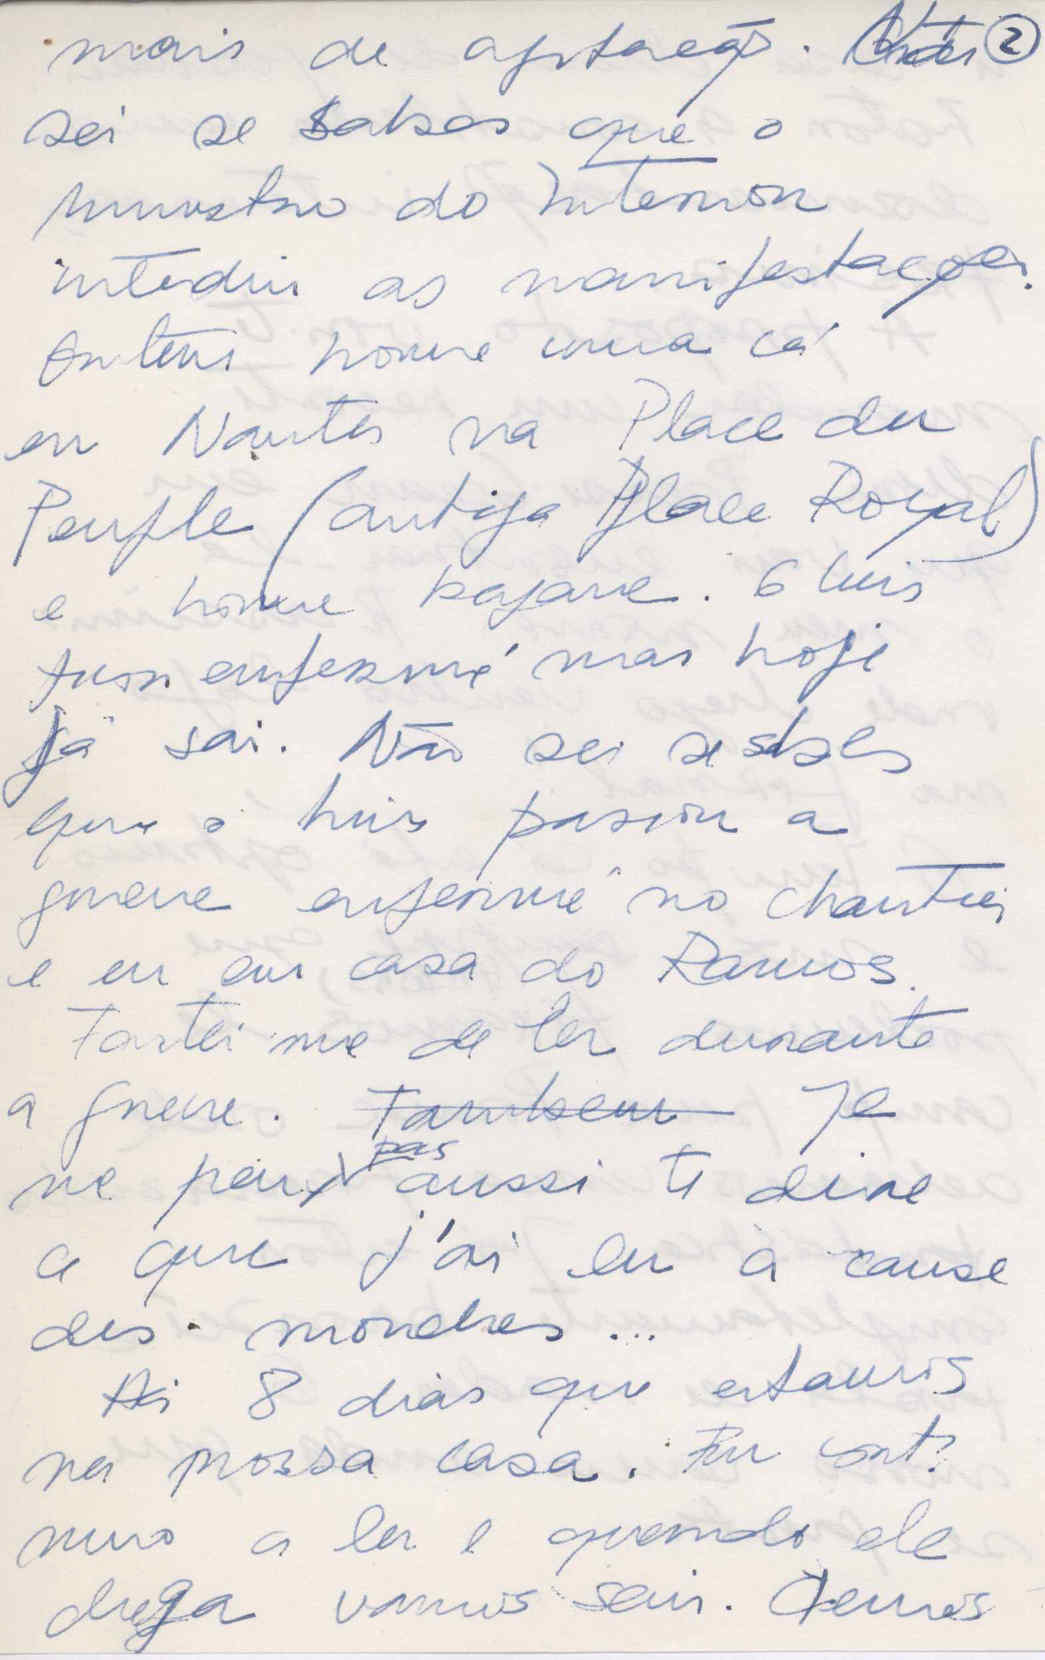 mais de agitação. Não ②
sei se sabes que o
ministro do Interior
interdiu as manifestações.
Ontem houve uma cá
em Nantes na Place du
Peuple (antiga Place Royal)
e houve bagarre. O Luis
ficou enfermé mas hoje
já sai. Não sei se sabes
que o Luis passou a
guerre enfermé no chantier
e eu em casa do Ramos.
Fartei me de ler durante
a guerre. Também Je
ne peux pas aussi te dire
ce que j'ai lu à cause
des mouches...
Há 8 dias que estamos
na nossa casa. Eu conti
nuo a ler e quando ele
chega vamos sair. Temos